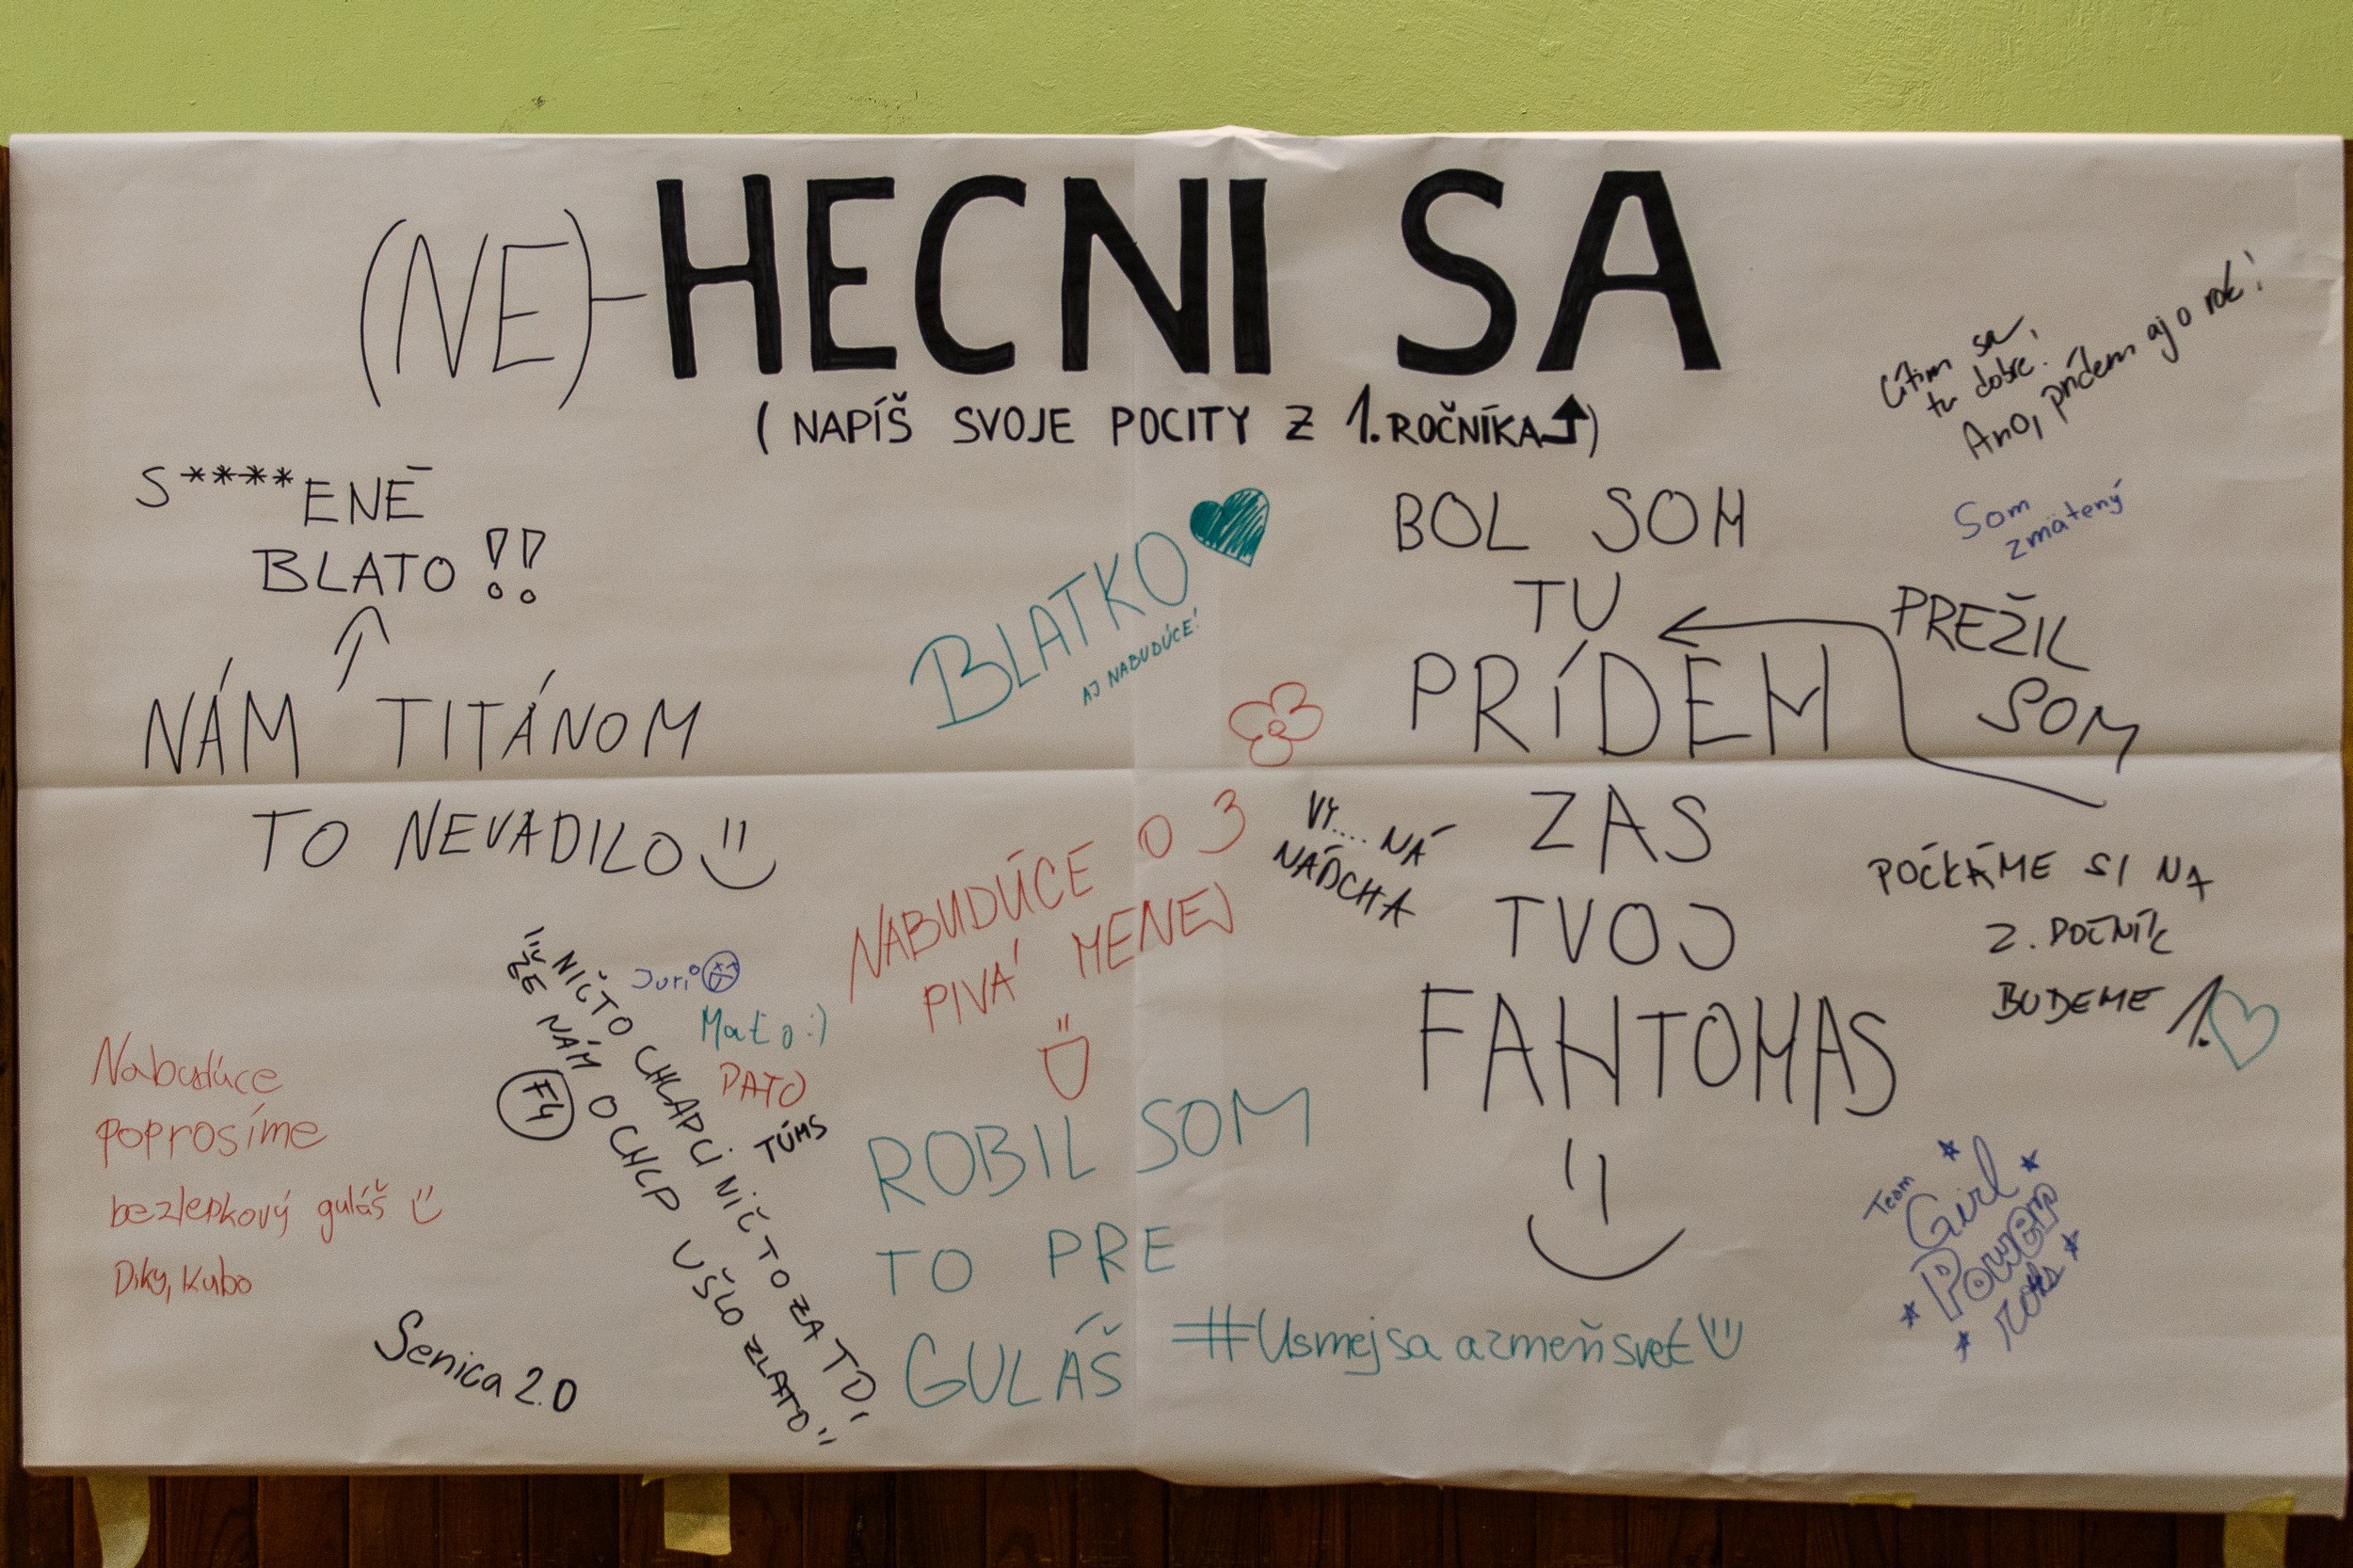 (NE)-HECNI SA
(NAPÍŠ SVOJE POCITY Z 1. ROČNÍKA)
S****ENÉ
BLATO!!
NÁM TITÁNOM
TO NEVADILO
BLATKO
AJ NABUDÚCE!
BOL SOM
TU
PRÍDEM
ZAS
TVOJ
FANTOMAS
Cítim sa
tu dobre.
Ano, prídem aj o rok!
Som
zmätený
PREŽIL
SOM
POČKÁME SI NA
2. ROČNÍK
BUDEME 1.
NABUDÚCE O 3
PIVÁ MENEJ
VY.... NÁ
NÁDCHA
"NIČ TO CHLAPCI NIČ TO ZA TO,
ŽE NÁM O CHLP UŠLO ZLATO"
F4
Juri
Maťo :)
PATO
TÚMS
Nabudúce
poprosíme
bezlepkový guláš
Diky, Kubo
Senica 2.0
ROBIL SOM
TO PRE
GULÁŠ
#Usmejsa azmeňsvet
Team
Girl
Power